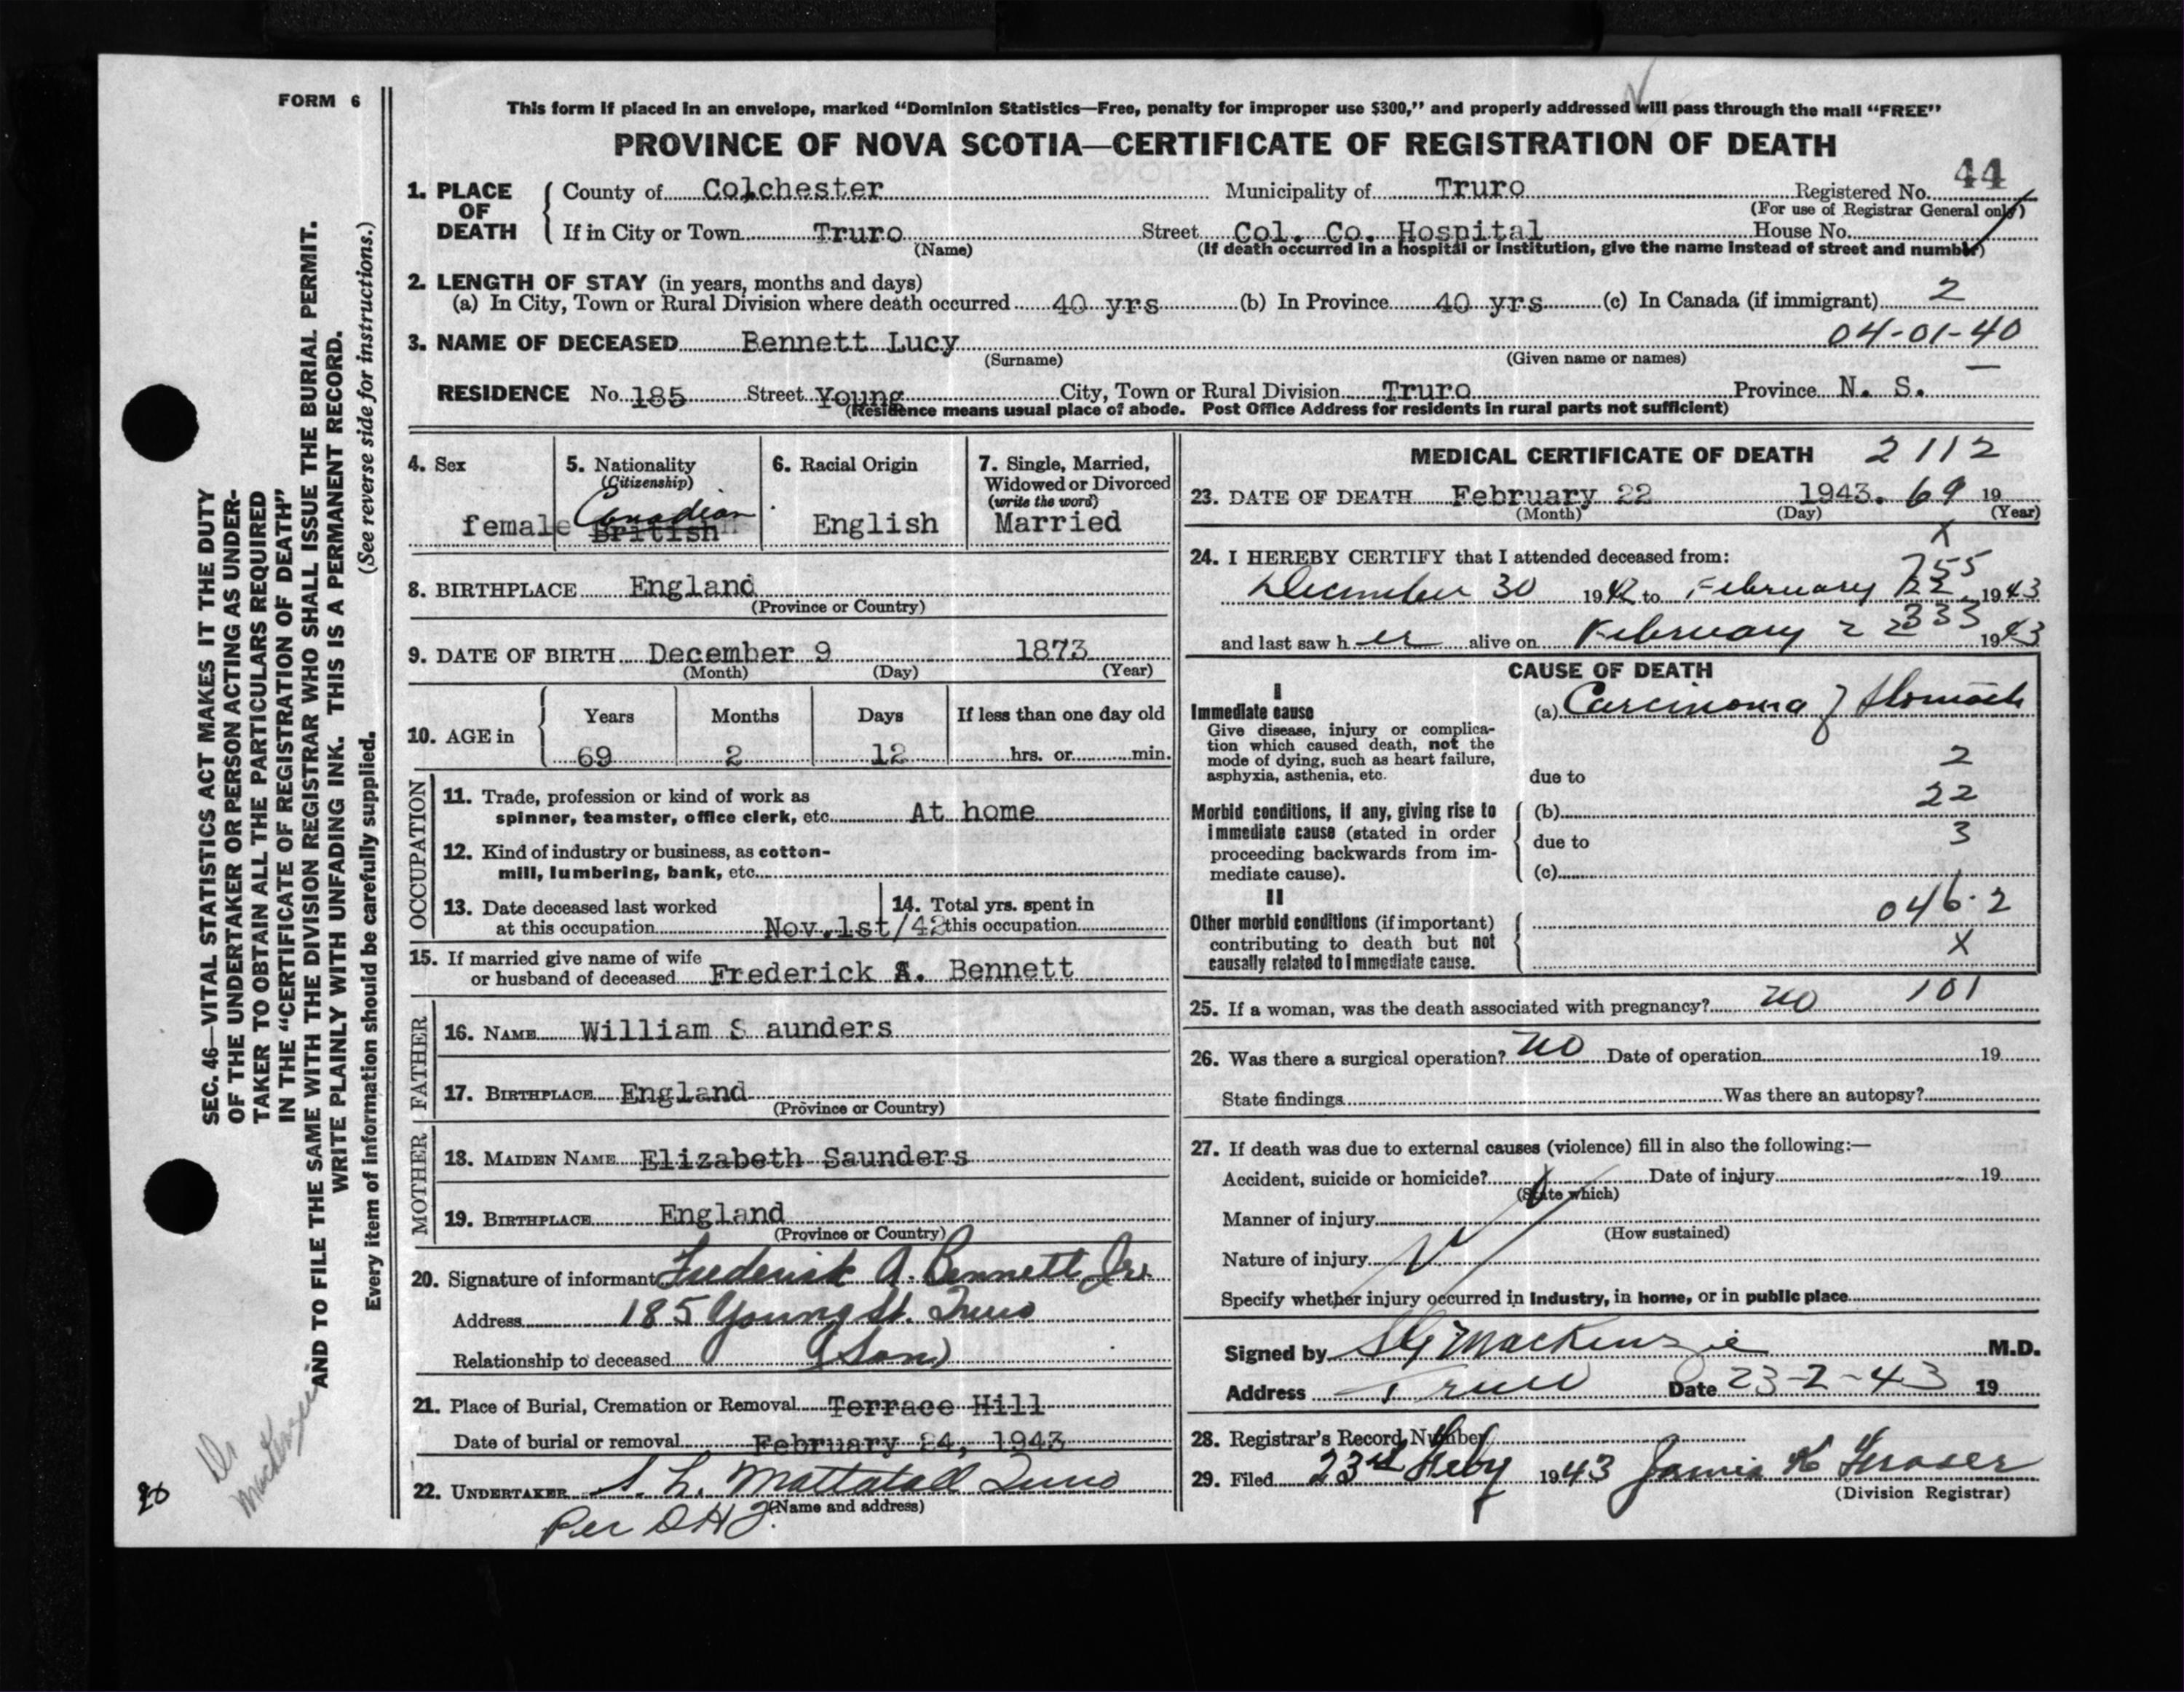 FORM 6
This form if placed in an envelope, marked “Dominion Statistics—Free, penalty for improper use $300,” and properly addressed will pass through the mail “FREE”
PROVINCE OF NOVA SCOTIA—CERTIFICATE OF REGISTRATION OF DEATH
44
1. PLACE OF DEATH { County of Colchester Municipality of Truro Registered No.
(For use of Registrar General only)
If in City or Town Truro Street Col. Co. Hospital House No.
(Name) (If death occurred in a hospital or institution, give the name instead of street and number)
2. LENGTH OF STAY (in years, months and days)
(a) In City, Town or Rural Division where death occurred 40 yrs (b) In Province 40 yrs (c) In Canada (if immigrant) 2
04-01-40
3. NAME OF DECEASED Bennett Lucy
(Surname) (Given name or names)
RESIDENCE No. 185 Street Young City, Town or Rural Division Truro Province N. S.
(Residence means usual place of abode. Post Office Address for residents in rural parts not sufficient)
4. Sex
female
5. Nationality
(Citizenship)
Canadian
British
6. Racial Origin
English
7. Single, Married, Widowed or Divorced
(write the word)
Married
8. BIRTHPLACE England
(Province or Country)
9. DATE OF BIRTH December 9 1873
(Month) (Day) (Year)
10. AGE in { Years Months Days If less than one day old
69 2 12 hrs. or min.
OCCUPATION
11. Trade, profession or kind of work as
spinner, teamster, office clerk, etc. At home
12. Kind of industry or business, as cotton-
mill, lumbering, bank, etc.
13. Date deceased last worked
at this occupation Nov.1st/42
14. Total yrs. spent in
this occupation
15. If married give name of wife
or husband of deceased Frederick A. Bennett
FATHER
16. NAME William S aunders
17. BIRTHPLACE England
(Province or Country)
MOTHER
18. MAIDEN NAME Elizabeth Saunders
19. BIRTHPLACE England
(Province or Country)
20. Signature of informant Frederick A. Bennett Jr.
Address 185 Young St. Truro
Relationship to deceased (Son)
21. Place of Burial, Cremation or Removal Terrace Hill
Date of burial or removal February 24, 1943
22. UNDERTAKER S. L. Mattatall Truro
(Name and address)
Per D H J
MEDICAL CERTIFICATE OF DEATH 2112
23. DATE OF DEATH February 22 1943. 69 19
(Month) (Day) (Year)
X
24. I HEREBY CERTIFY that I attended deceased from:
755
December 30 1942 to February 22 1943
333
and last saw h er alive on February 22 1943
CAUSE OF DEATH
I
Immediate cause
Give disease, injury or complica-
tion which caused death, not the
mode of dying, such as heart failure,
asphyxia, asthenia, etc.
(a) Carcinoma of Stomach
2
due to
22
Morbid conditions, if any, giving rise to
immediate cause (stated in order
proceeding backwards from im-
mediate cause).
(b)
3
due to
(c)
II
Other morbid conditions (if important)
contributing to death but not
causally related to immediate cause.
046.2
X
25. If a woman, was the death associated with pregnancy? no 101
26. Was there a surgical operation? no Date of operation 19
State findings Was there an autopsy?
27. If death was due to external causes (violence) fill in also the following:—
Accident, suicide or homicide? Date of injury 19
(State which)
Manner of injury
(How sustained)
Nature of injury
Specify whether injury occurred in industry, in home, or in public place
Signed by MacKenzie M.D.
Address Truro Date 23-2-43 19
28. Registrar's Record Number
29. Filed 23rd Feby 1943 James K Fraser
(Division Registrar)
SEC. 46—VITAL STATISTICS ACT MAKES IT THE DUTY
OF THE UNDERTAKER OR PERSON ACTING AS UNDER-
TAKER TO OBTAIN ALL THE PARTICULARS REQUIRED
IN THE “CERTIFICATE OF REGISTRATION OF DEATH”
AND TO FILE THE SAME WITH THE DIVISION REGISTRAR WHO SHALL ISSUE THE BURIAL PERMIT.
WRITE PLAINLY WITH UNFADING INK. THIS IS A PERMANENT RECORD.
Every item of information should be carefully supplied. (See reverse side for instructions.)
Dr
MacKenzie